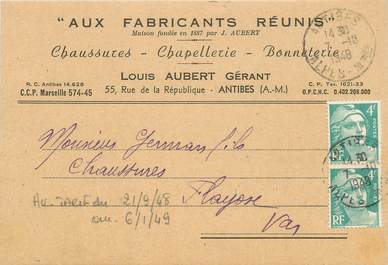 "AUX FABRICANTS RÉUNIS"
Maison fondée en 1887 par J. AUBERT
Chaussures - Chapellerie - Bonneterie
LOUIS AUBERT GÉRANT
R. C. Antibes 14.628
C.C.P. Marseille 574-45
55, Rue de la République - ANTIBES (A.-M.)
Tel. 1621-33
O.P.C.N.C. 0.402.206.000
ANTIBES
14 30
1948
ALPES Mmes
Monsieur Germain fils
Chaussures
Flayosc
Var
Au TARIF du 21/9/48
au 6/1/49
4F
POSTES
RF
4F
POSTES
RF